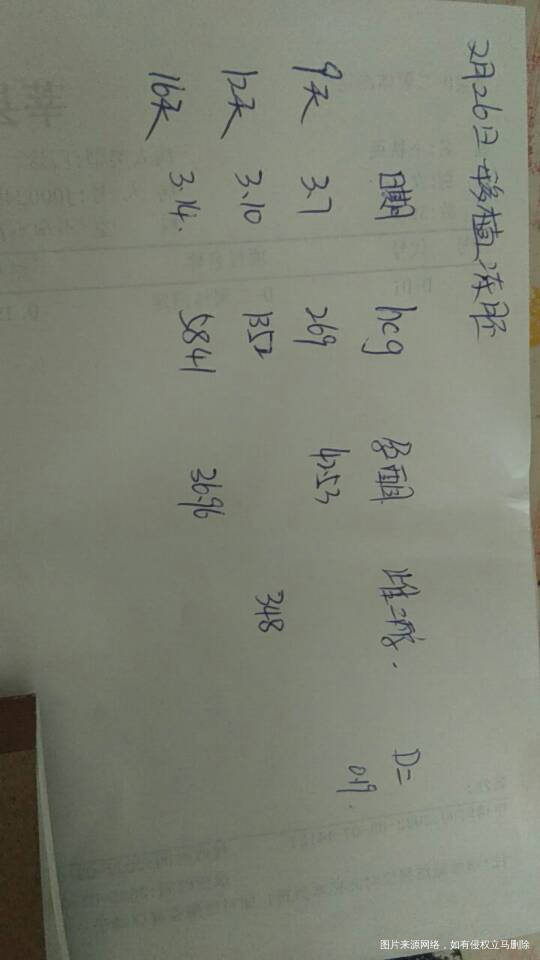 2月26日移植冻胚
日期 hcg 孕酮 雌二醇. D二
9天 3.7 269 42.53 0.19.
12天 3.10 1352 348
16天 3.14. 5841 36.96
图片来源网络，如有侵权立马删除